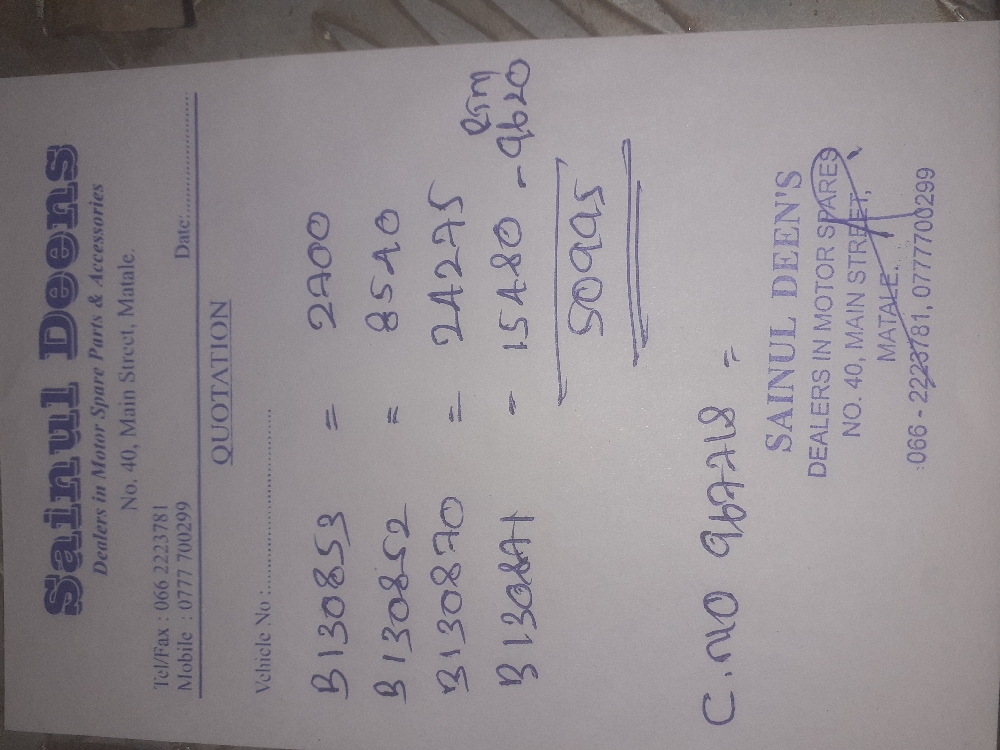 Sainul Deens
Dealers in Motor Spare Parts & Accessories
No. 40, Main Street, Matale.
Tel/Fax : 066 2223781
Mobile : 0777 700299
Date:....................
QUOTATION
Vehicle No :..............................
B130853 = 2700
B130852 = 8540
B130870 = 24275
B130871 - 15480 - 9620
50995
C.NO 967718 =
SAINUL DEEN'S
DEALERS IN MOTOR SPARES
NO. 40, MAIN STREET,
MATALE.
:066 - 2223781, 0777700299